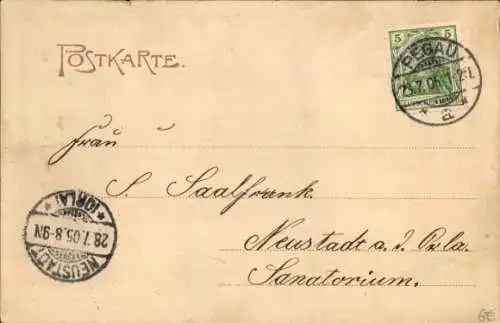 POSTKARTE.
5 5
PEGAU
7.05
a
Frau
S. Saalfrank.
Neustadt a. d. Orla.
Sanatorium.
(ORLA)
28.7.05.8-9N
NEUSTADT